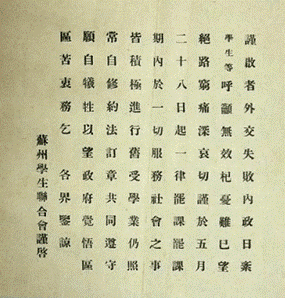 謹啟者外交失敗內政日紊
學生等呼籲無效杞憂雖已望
絕路窮痛深哀切謹於五月
二十八日起一律罷課罷課
期內於一切服務社會之事
皆積極進行舊受學業仍照
常自修約法訂章共同遵守
願自犧牲以望政府覺悟區
區苦衷務乞 各界鑒諒
蘇州學生聯合會謹啓